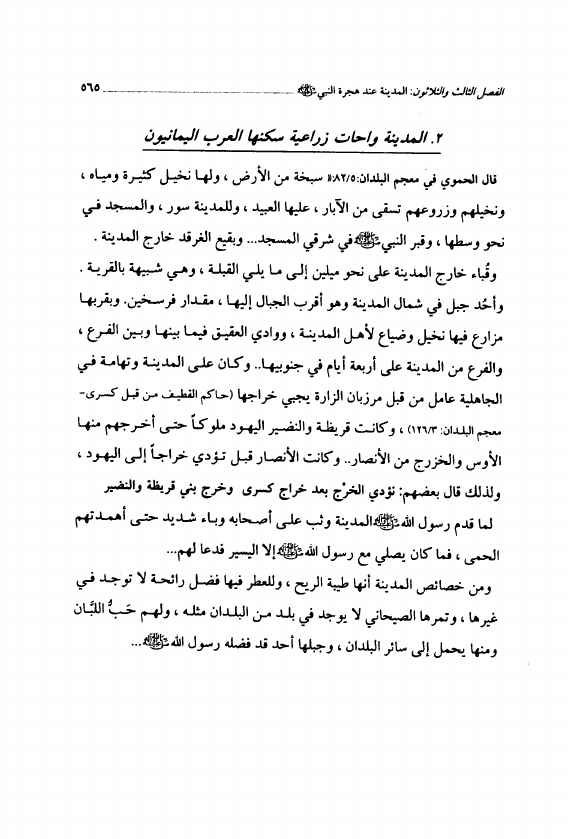 الفصل الثالث والثلاثون: المدينة عند هجرة النبي ﷺ ٥٦٥
٢. المدينة واحات زراعية سكنها العرب اليمانيون
قال الحموي في معجم البلدان:٨٢/٥:« سبخة من الأرض ، ولها نخيل كثيرة ومياه ،
ونخيلهم وزروعهم تسقى من الآبار ، عليها العبيد ، وللمدينة سور ، والمسجد في
نحو وسطها ، وقبر النبي ﷺ في شرقي المسجد... وبقيع الغرقد خارج المدينة .
وقُباء خارج المدينة على نحو ميلين إلى ما يلي القبلة ، وهي شبيهة بالقرية .
وأحُد جبل في شمال المدينة وهو أقرب الجبال إليها ، مقدار فرسخين. وبقربها
مزارع فيها نخيل وضياع لأهل المدينة ، ووادي العقيق فيما بينها وبين الفرع ،
والفرع من المدينة على أربعة أيام في جنوبيها.. وكان على المدينة وتهامة في
الجاهلية عامل من قبل مرزبان الزارة يجبي خراجها (حاكم القطيف من قبل كسرى-
معجم البلدان: ١٢٦/٣) ، وكانت قريظة والنضير اليهود ملوكاً حتى أخرجهم منها
الأوس والخزرج من الأنصار.. وكانت الأنصار قبل تؤدي خراجاً إلى اليهود ،
ولذلك قال بعضهم: نؤدي الخرْج بعد خراج كسرى وخرج بني قريظة والنضير
لما قدم رسول الله ﷺ المدينة وثب على أصحابه وباء شديد حتى أهمدتهم
الحمى ، فما كان يصلي مع رسول الله ﷺ إلا اليسير فدعا لهم...
ومن خصائص المدينة أنها طيبة الريح ، وللعطر فيها فضل رائحة لا توجد في
غيرها ، وتمرها الصيحاني لا يوجد في بلد من البلدان مثله ، ولهم حَبُّ اللبَّان
ومنها يحمل إلى سائر البلدان ، وجبلها أحد قد فضله رسول الله ﷺ...